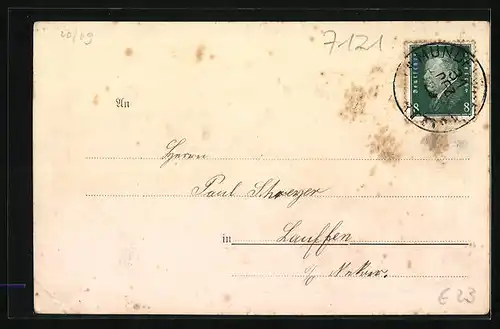 20/09
7121
MUNDE
Deutsches Reich
8 8
An
Herrn
Paul Schweyer
in Lauffen
a/ Neckar.
E 23